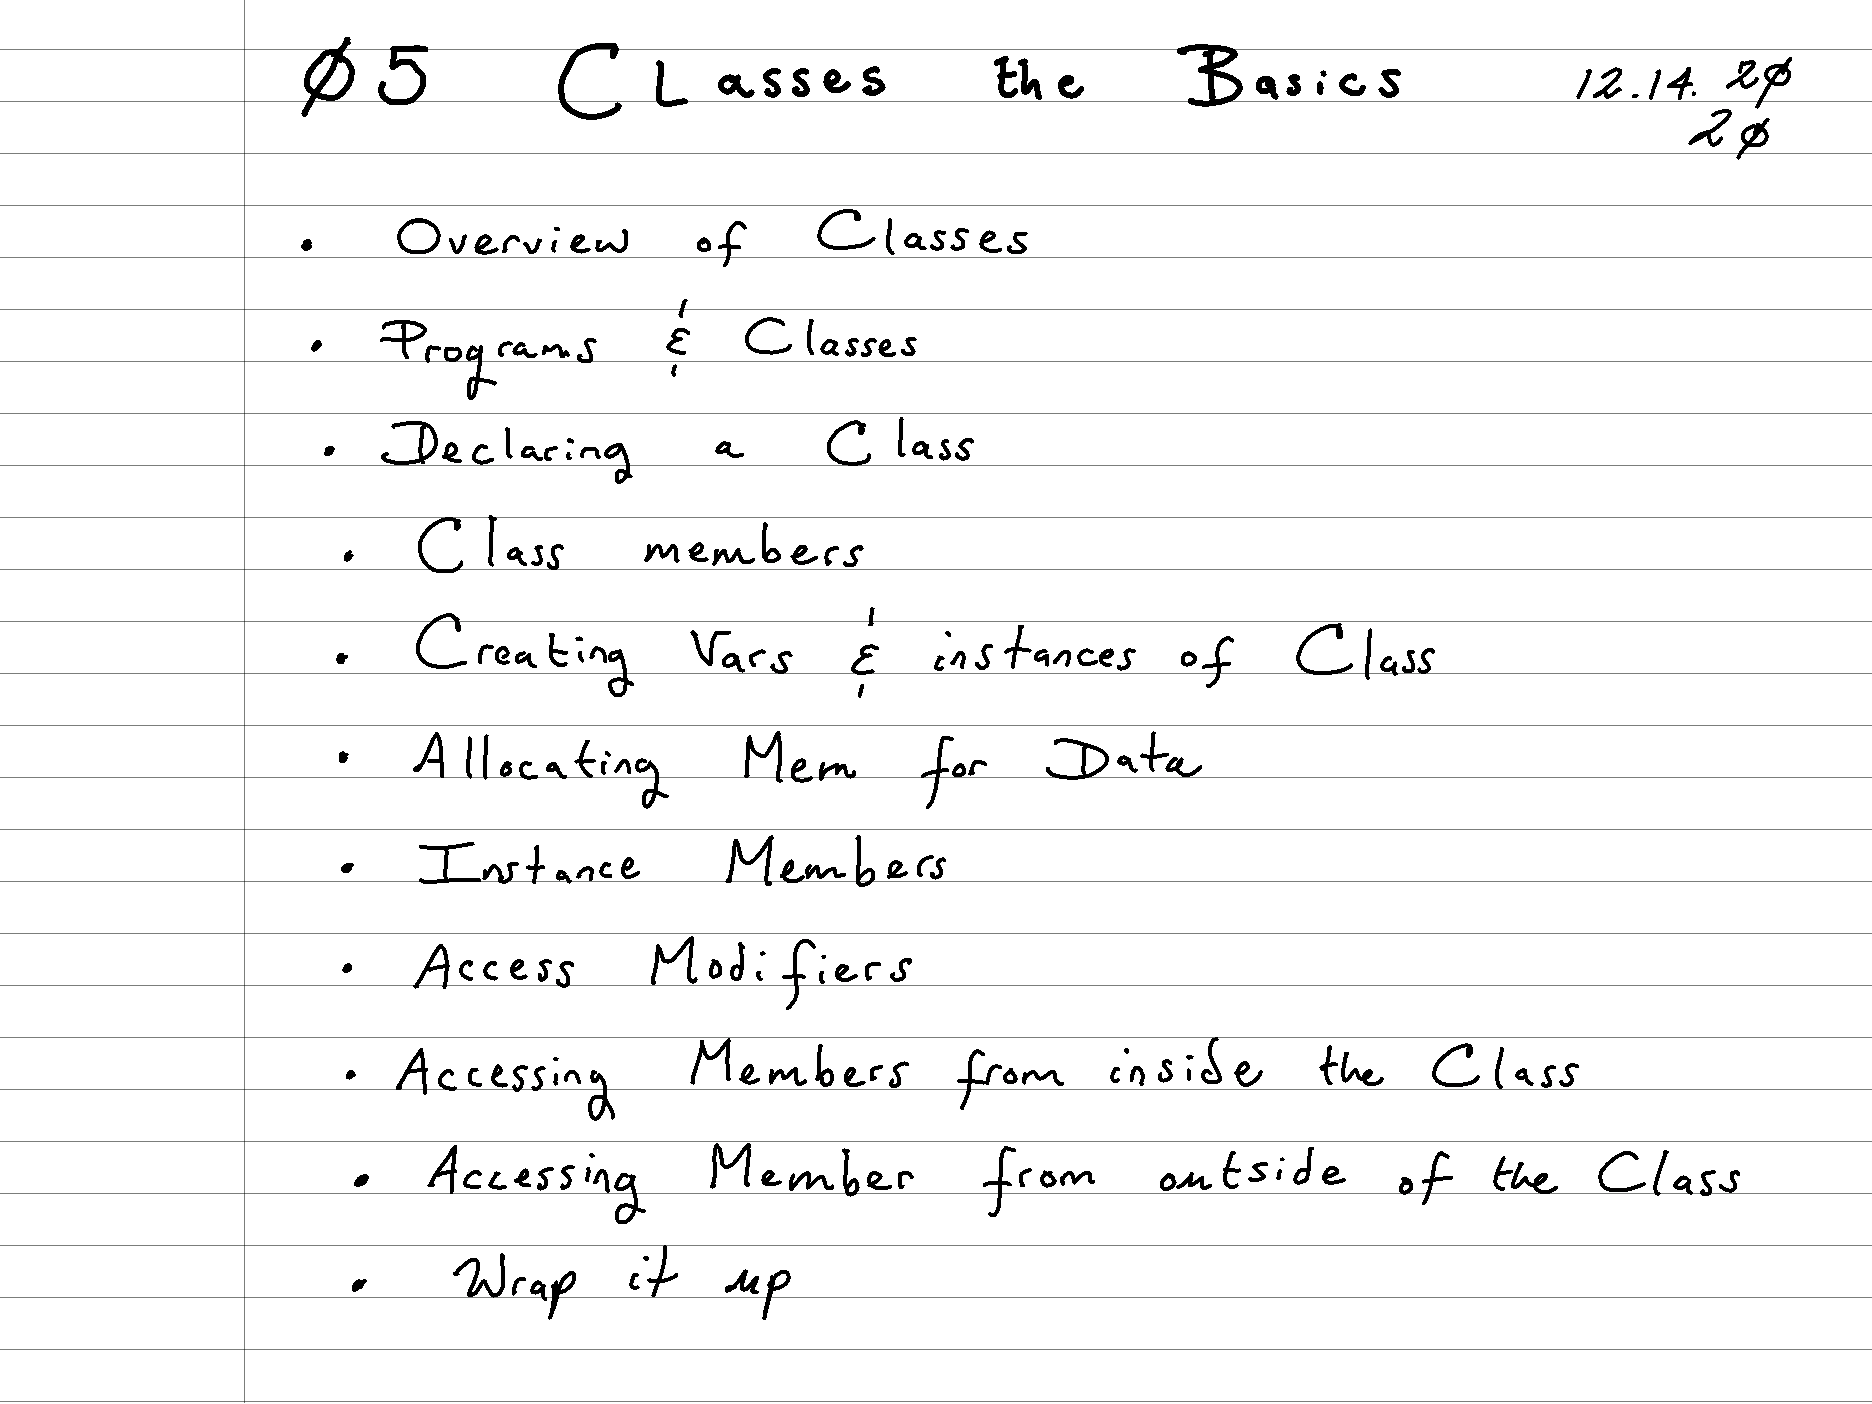 Ø5 Classes the Basics 12.14.2Ø
2Ø
• Overview of Classes
• Programs & Classes
• Declaring a Class
• Class members
• Creating Vars & instances of Class
• Allocating Mem for Data
• Instance Members
• Access Modifiers
• Accessing Members from inside the Class
• Accessing Member from outside of the Class
• Wrap it up